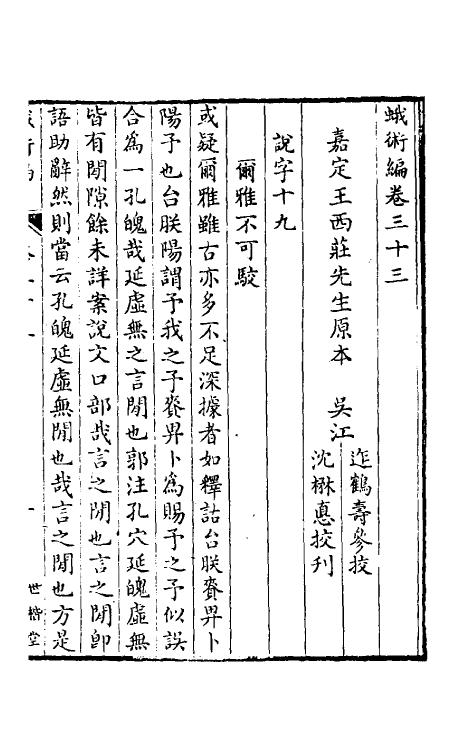 蛾術編卷三十三
嘉定王西莊先生原本　吳江
迮鶴壽參挍
沈楙悳挍刋
說字十九
爾雅不可駁
或疑爾雅雖古亦多不足深據者如釋詁台朕賚畀卜
陽予也台朕陽謂予我之予賚畀卜為賜予之予似誤
合為一孔魄哉延虛無之言閒也郭注孔穴延魄虛無
皆有閒隙餘未詳案說文口部哉言之閒也言之閒卽
語助辭然則當云孔魄延虛無閒也哉言之閒也方是
世楷堂